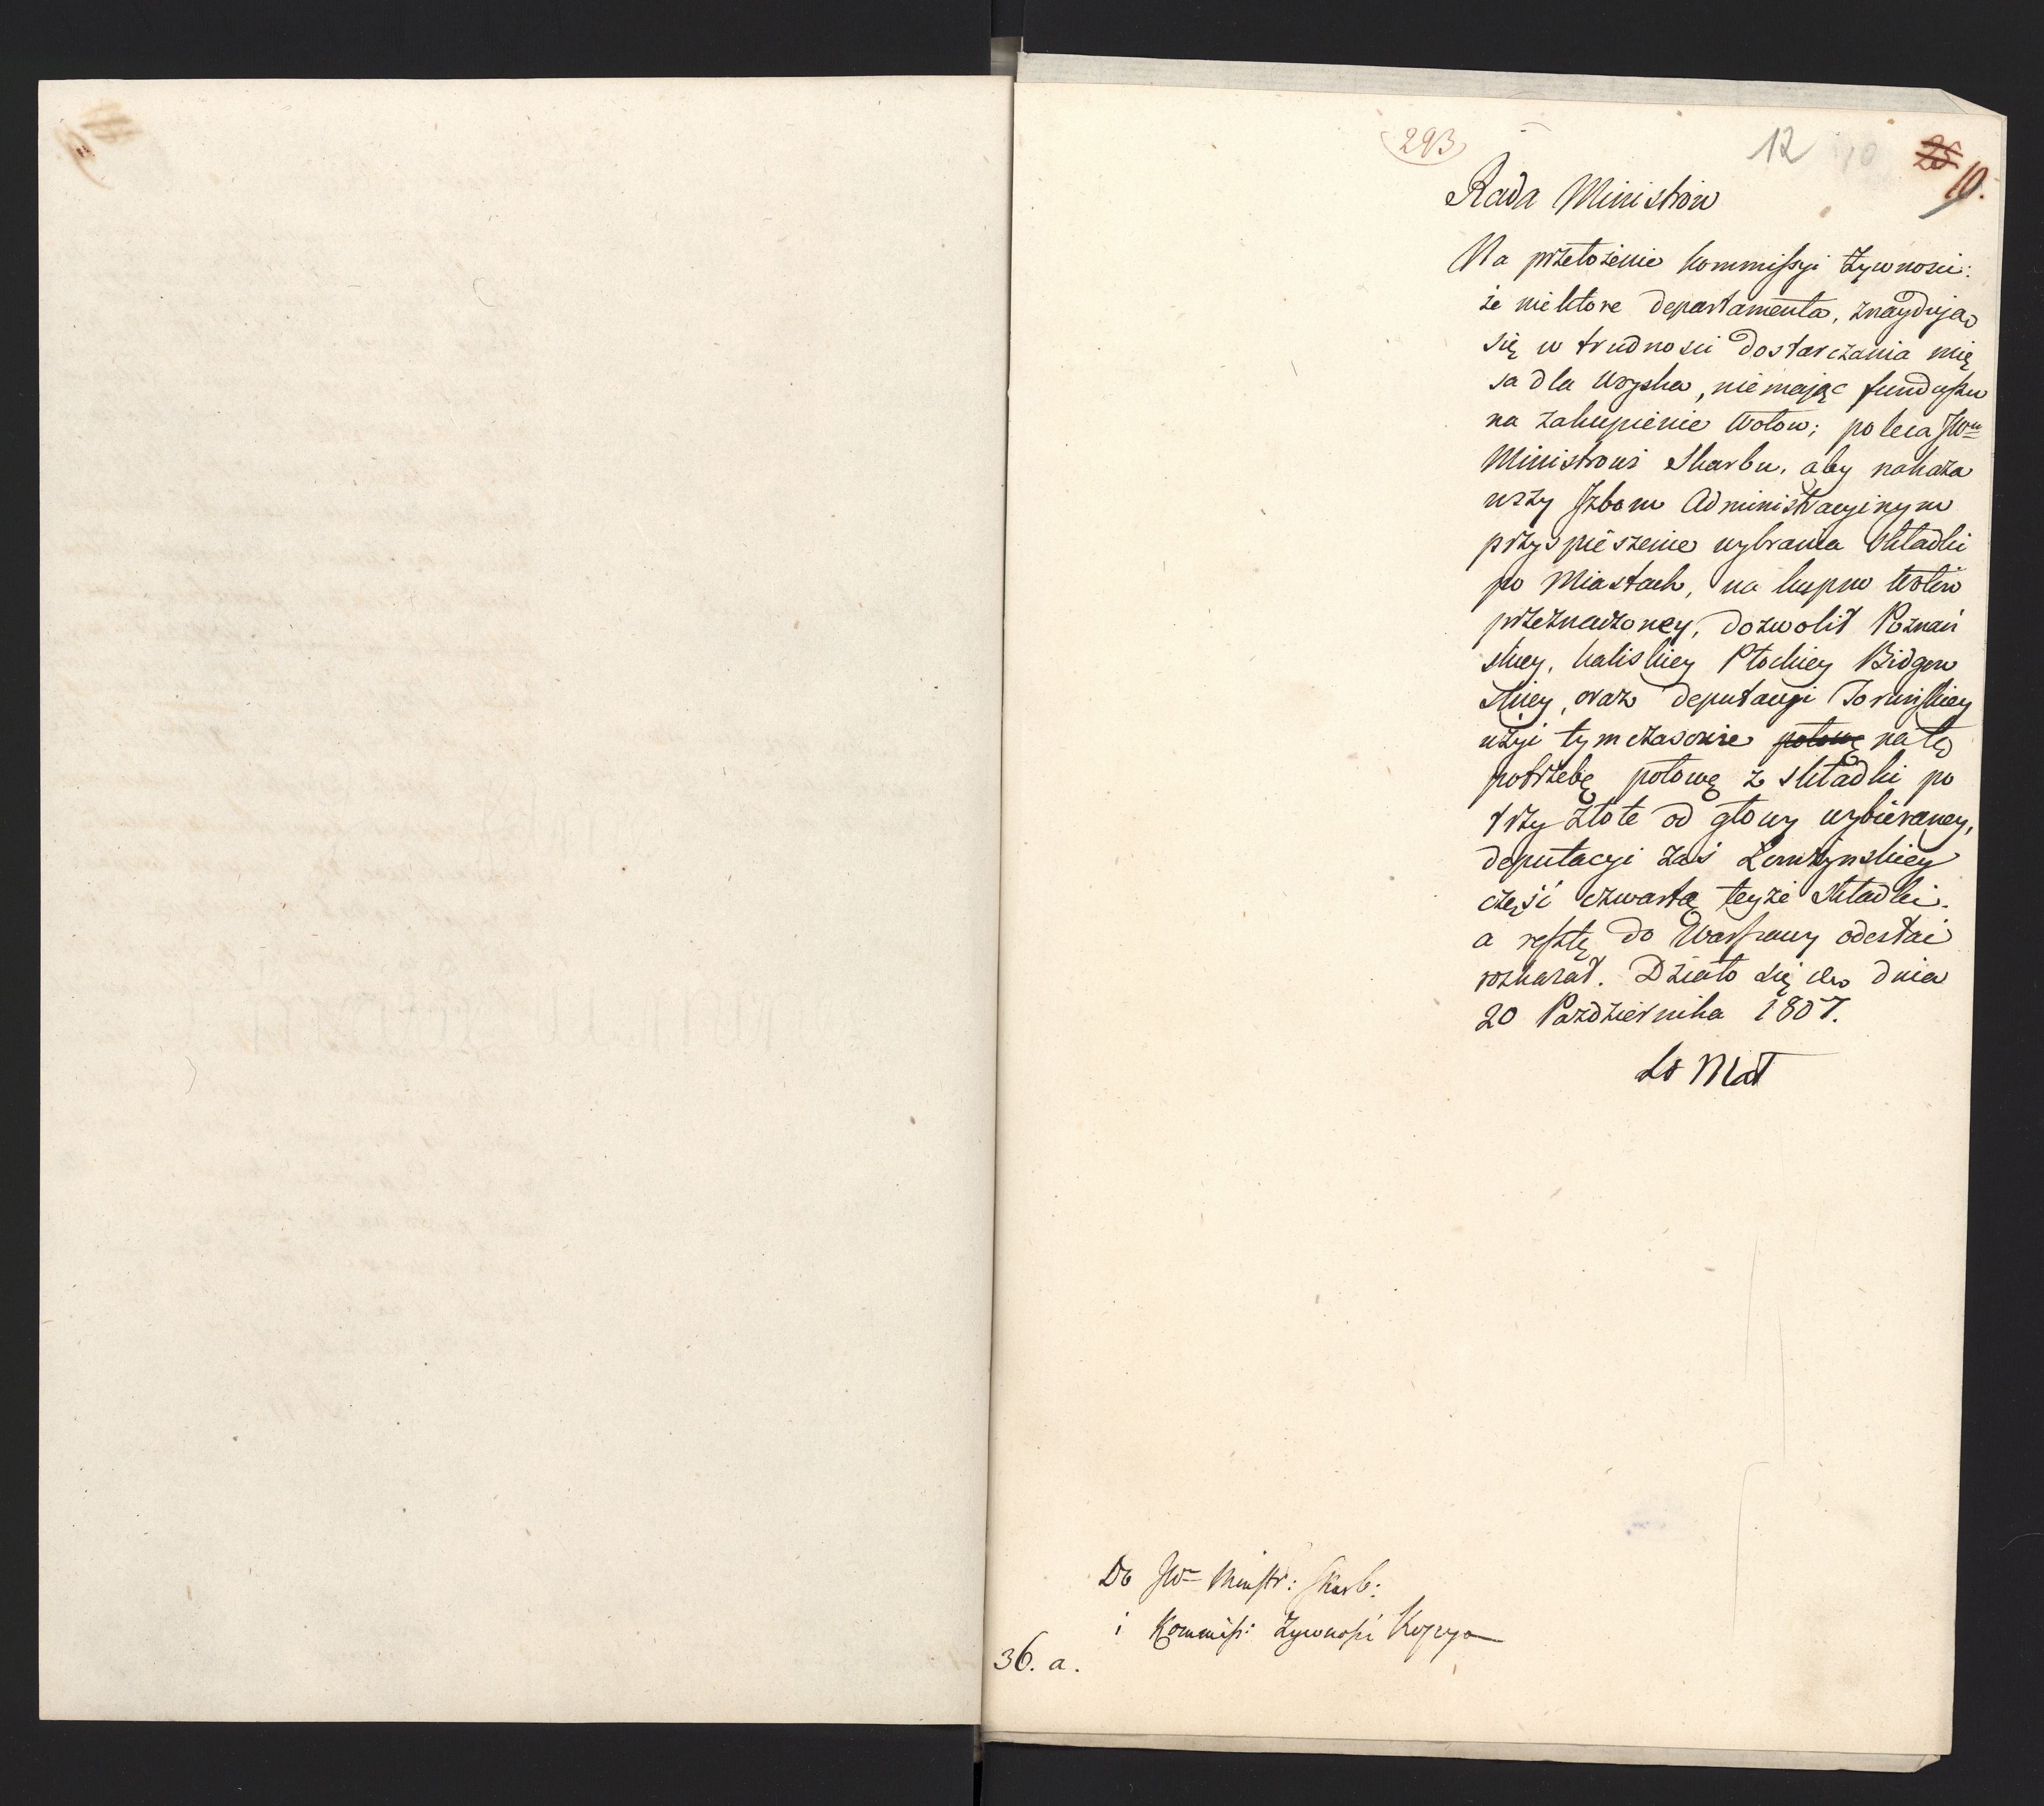 293
12 10 25 10.
Rada Ministrow
Na przełożenie Kommissyi Żywnosci:
że niektore departamenta, znaydują
się w trudnosci dostarczania mię
sa dla woyska, niemając funduszu
na zakupienie Wołow; poleca JWu
Ministrowi Skarbu, aby nakaza
wszy Izbom Administracyinym
przyspieszenie wybrania składki
po Miastach, na kupno Wołów
przeznaczoney, dozwolił Poznań
skiey, Kaliskiey Płockiey Bidgow
skiey, oraz deputacyi Toruńskiey
użyi tymczasowie połowę na tę
potrzebę połowę z składki po
trzy złote od głowy wybieraney,
deputacyi zaś Łomżynskiey
część czwartą teyże składki.
a resztę do Warszawy odesłać
rozkazał. Działo się dnia
20 Pazdziernika 1807.
Do JWo Ministr: Skarb:
i Kommiss: Żywnosci Kopya
36. a.